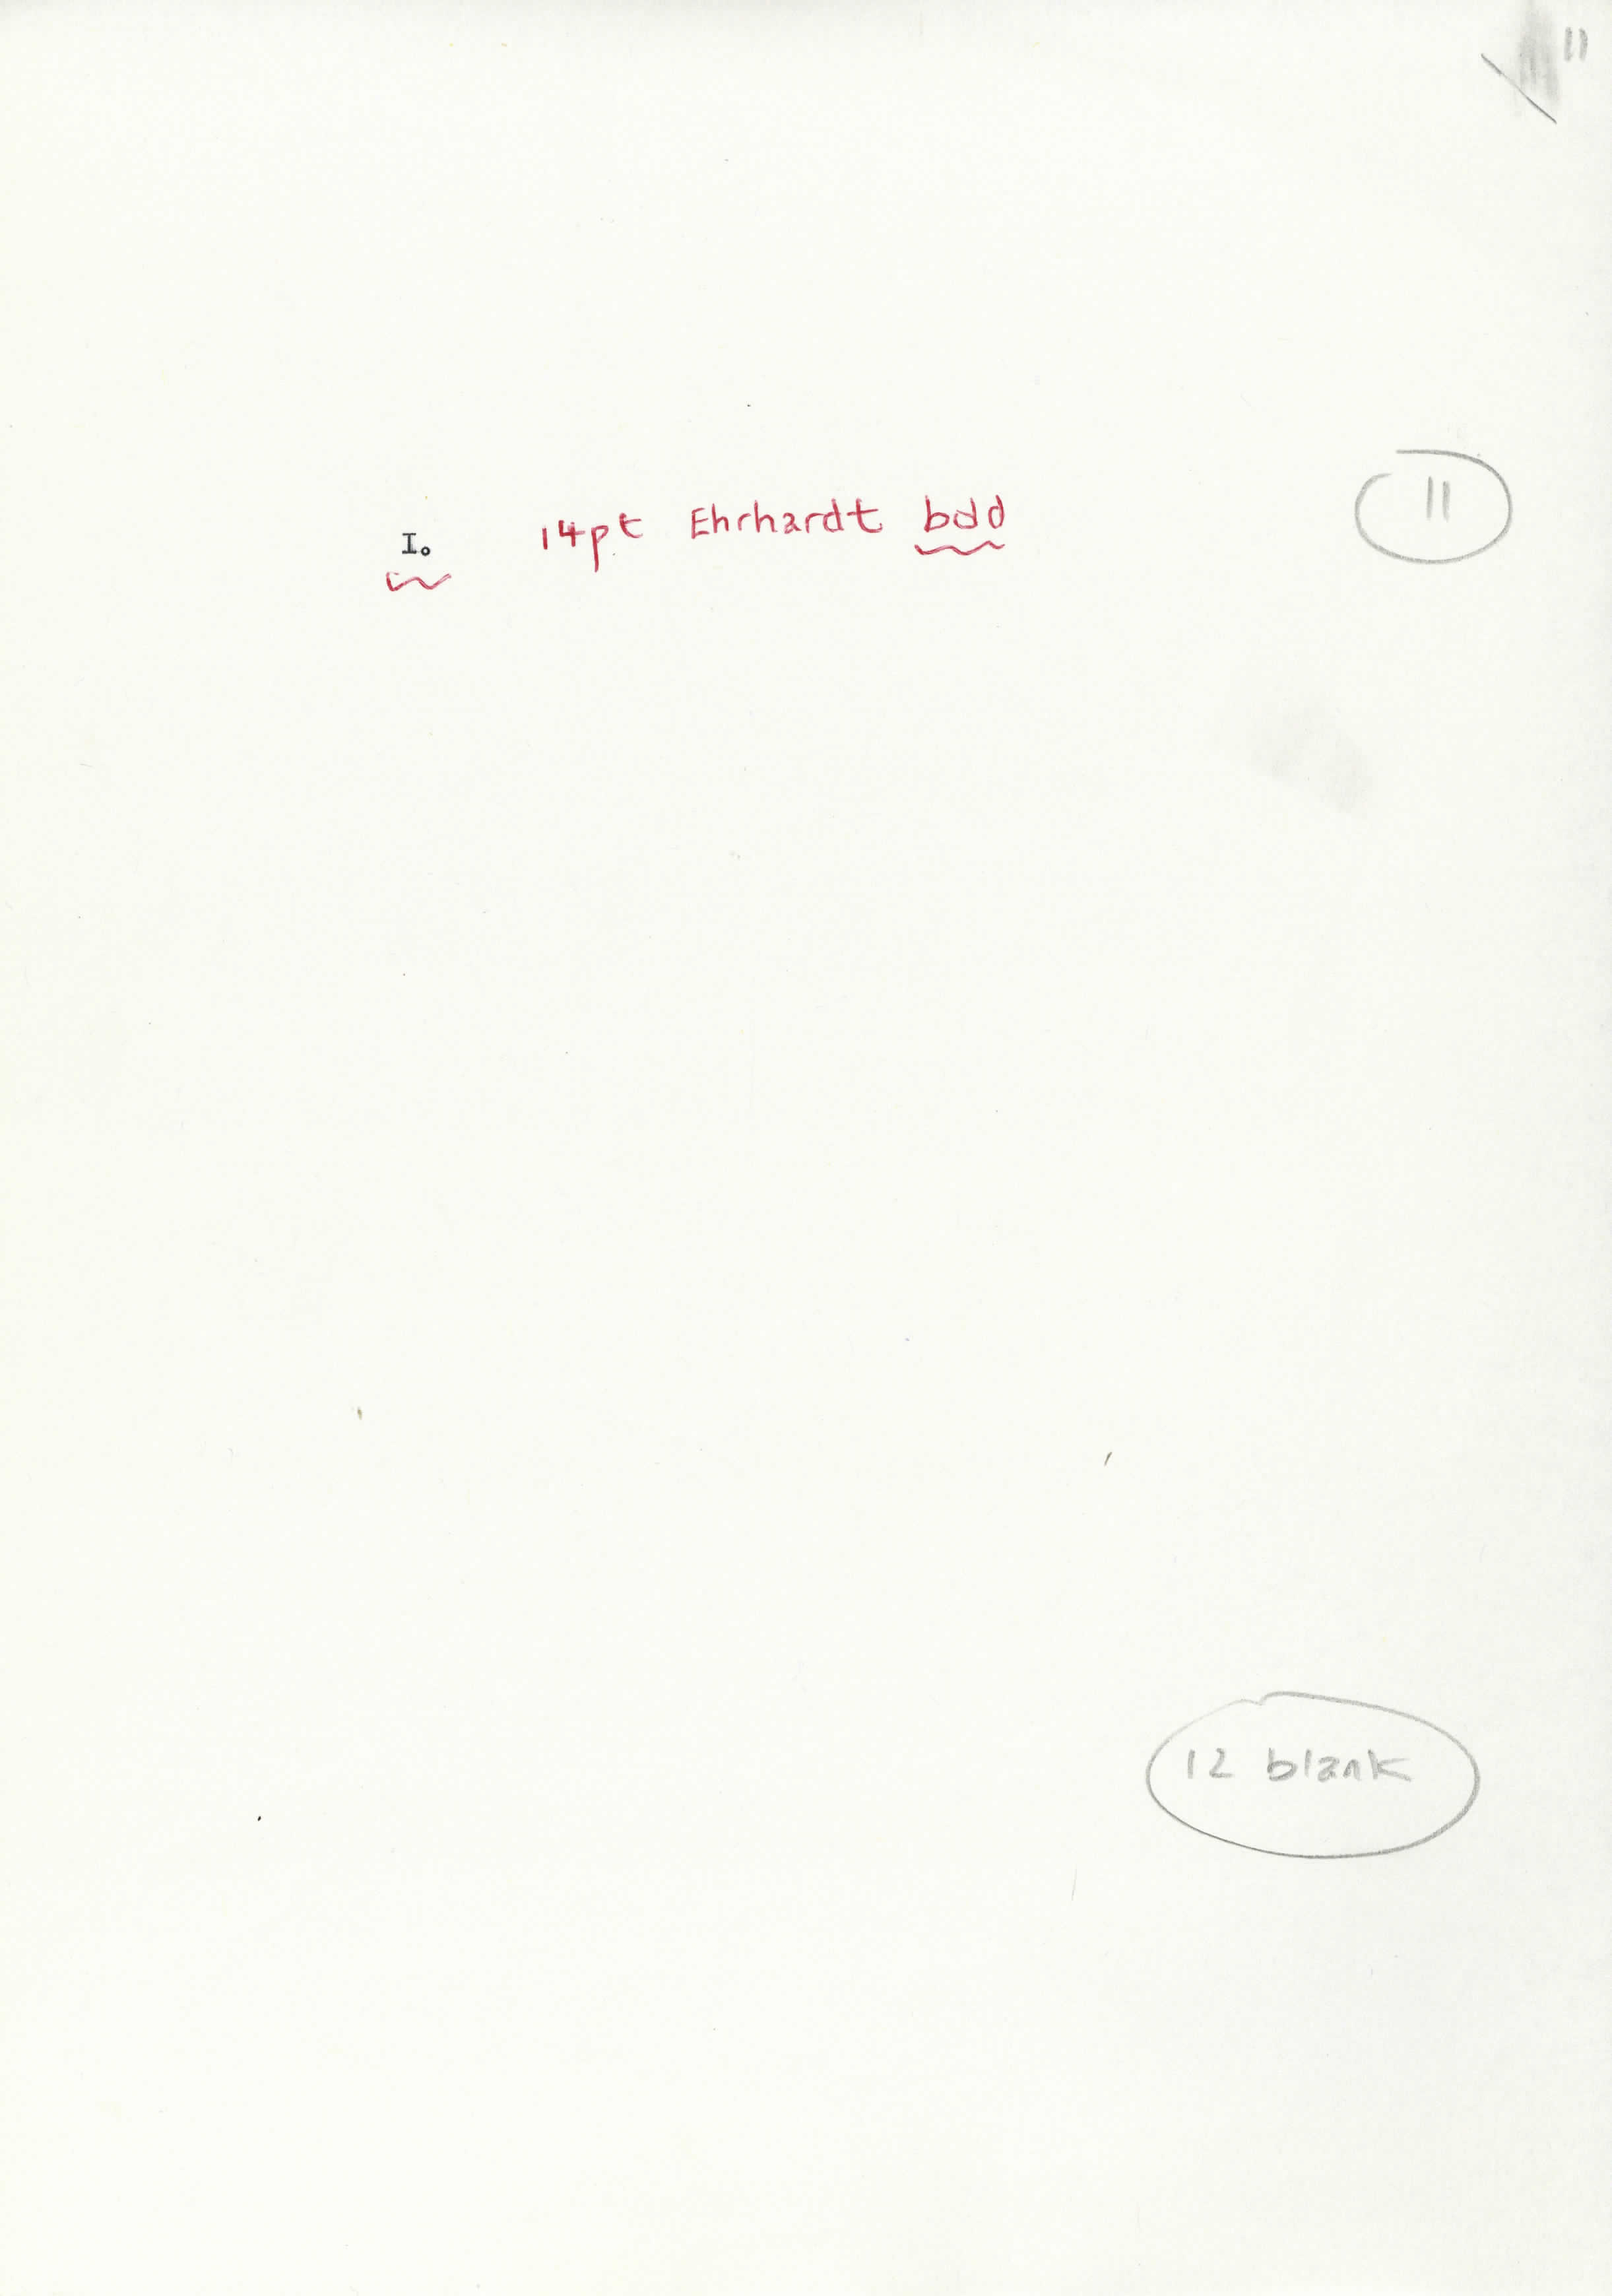 11
11
I. 14pt Ehrhardt bdd
12 blank